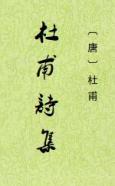 杜甫詩集
〔唐〕杜甫